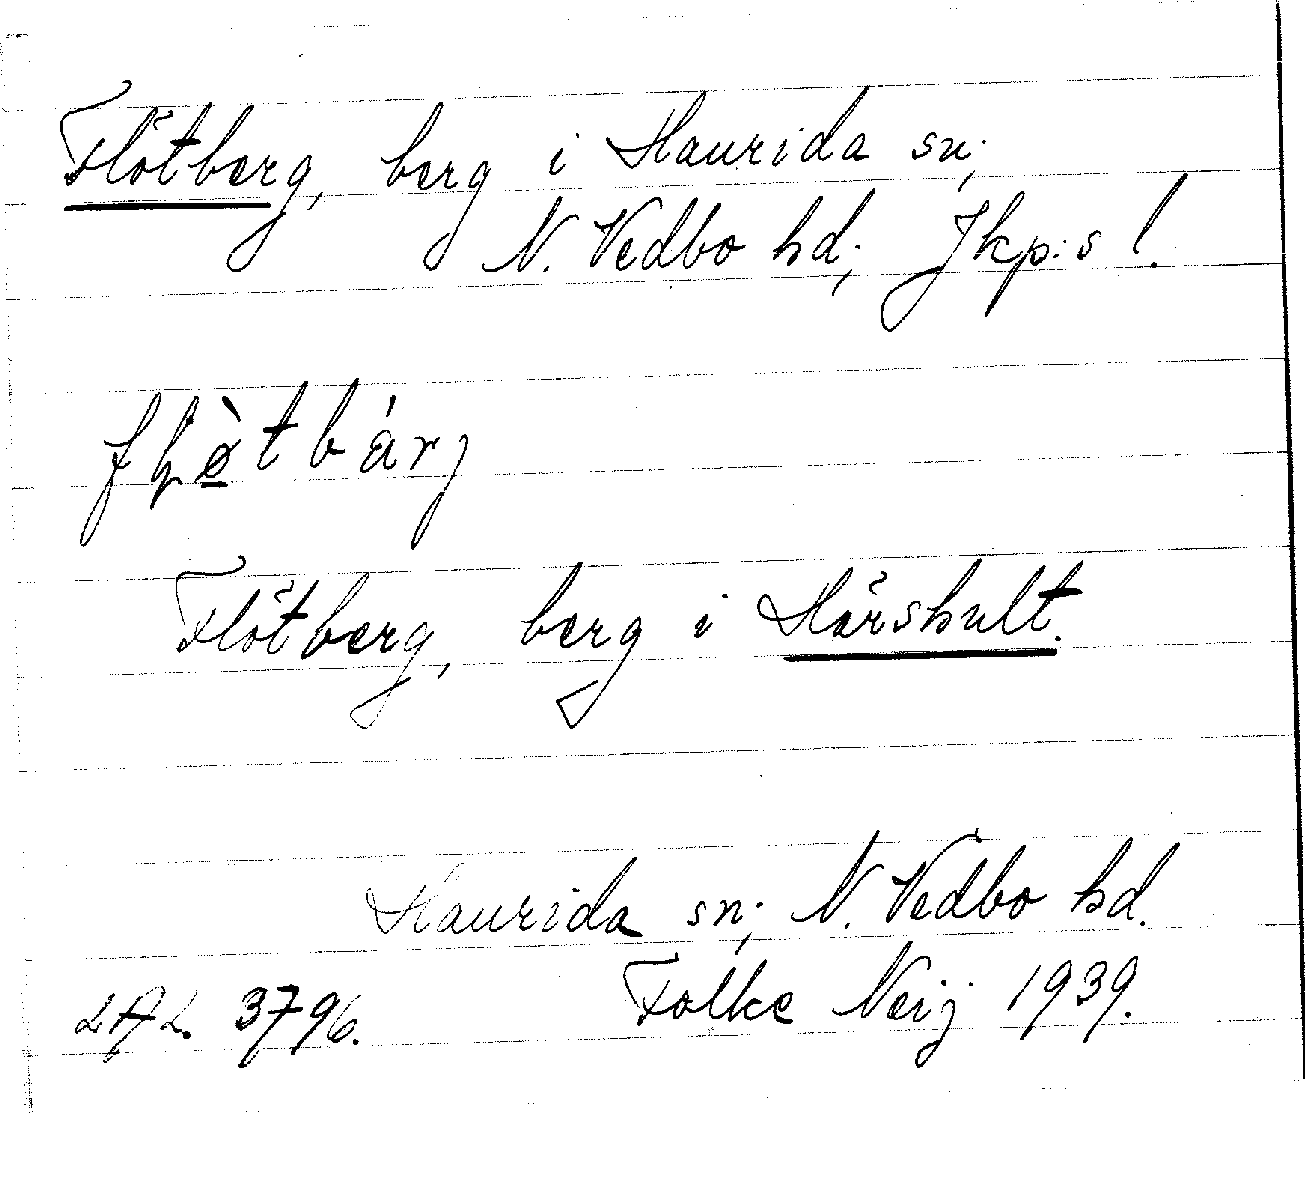 Flötberg, berg i Haurida sn;
N. Vedbo hd; Jkp:s l.
fłø̀tbárj
Flötberg, berg i Hårshult.
Haurida sn; N. Vedbo hd.
LAL 3796. Folke Neij 1939.